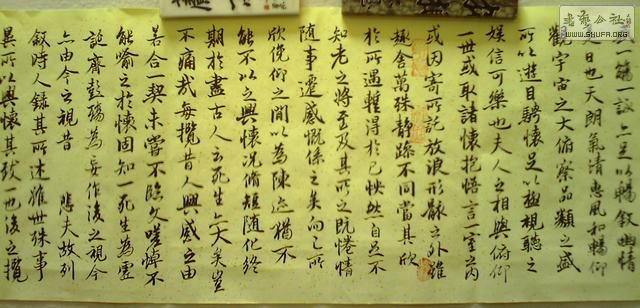 書藝公社
www.SHUFA.org
一觴一詠亦足以暢敘幽情
是日也天朗氣清惠風和暢仰
觀宇宙之大俯察品類之盛
所以遊目騁懷足以極視聽之
娛信可樂也夫人之相與俯仰
一世或取諸懷抱悟言一室之內
或因寄所託放浪形骸之外雖
趣舍萬殊靜躁不同當其欣
於所遇輒得於己怏然自足不
知老之將至及其所之既惓情
隨事遷感慨係之矣向之所
欣俛仰之間以為陳迹猶不
能不以之興懷況脩短隨化終
期於盡古人云死生亦大矣豈
不痛哉每攬昔人興感之由
若合一契未嘗不臨文嗟悼不
能喻之於懷固知一死生為虛
誕齊彭殤為妄作後之視今
亦由今之視昔 悲夫故列
敘時人錄其所述雖世殊事
異所以興懷其致一也後之攬